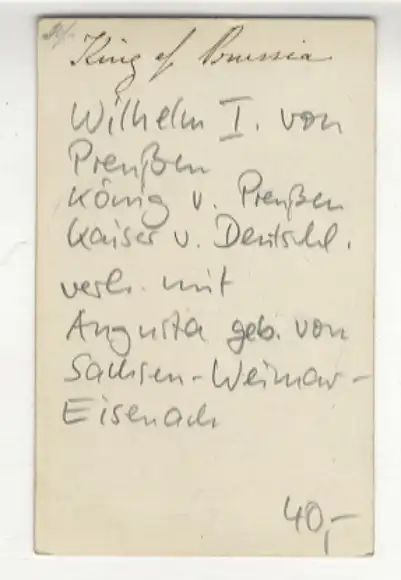 King of Prussia
Wilhelm I. von
Preußen
König v. Preußen
Kaiser v. Deutschl.
verh. mit
Augusta geb. von
Sachsen-Weimar-
Eisenach
40,-